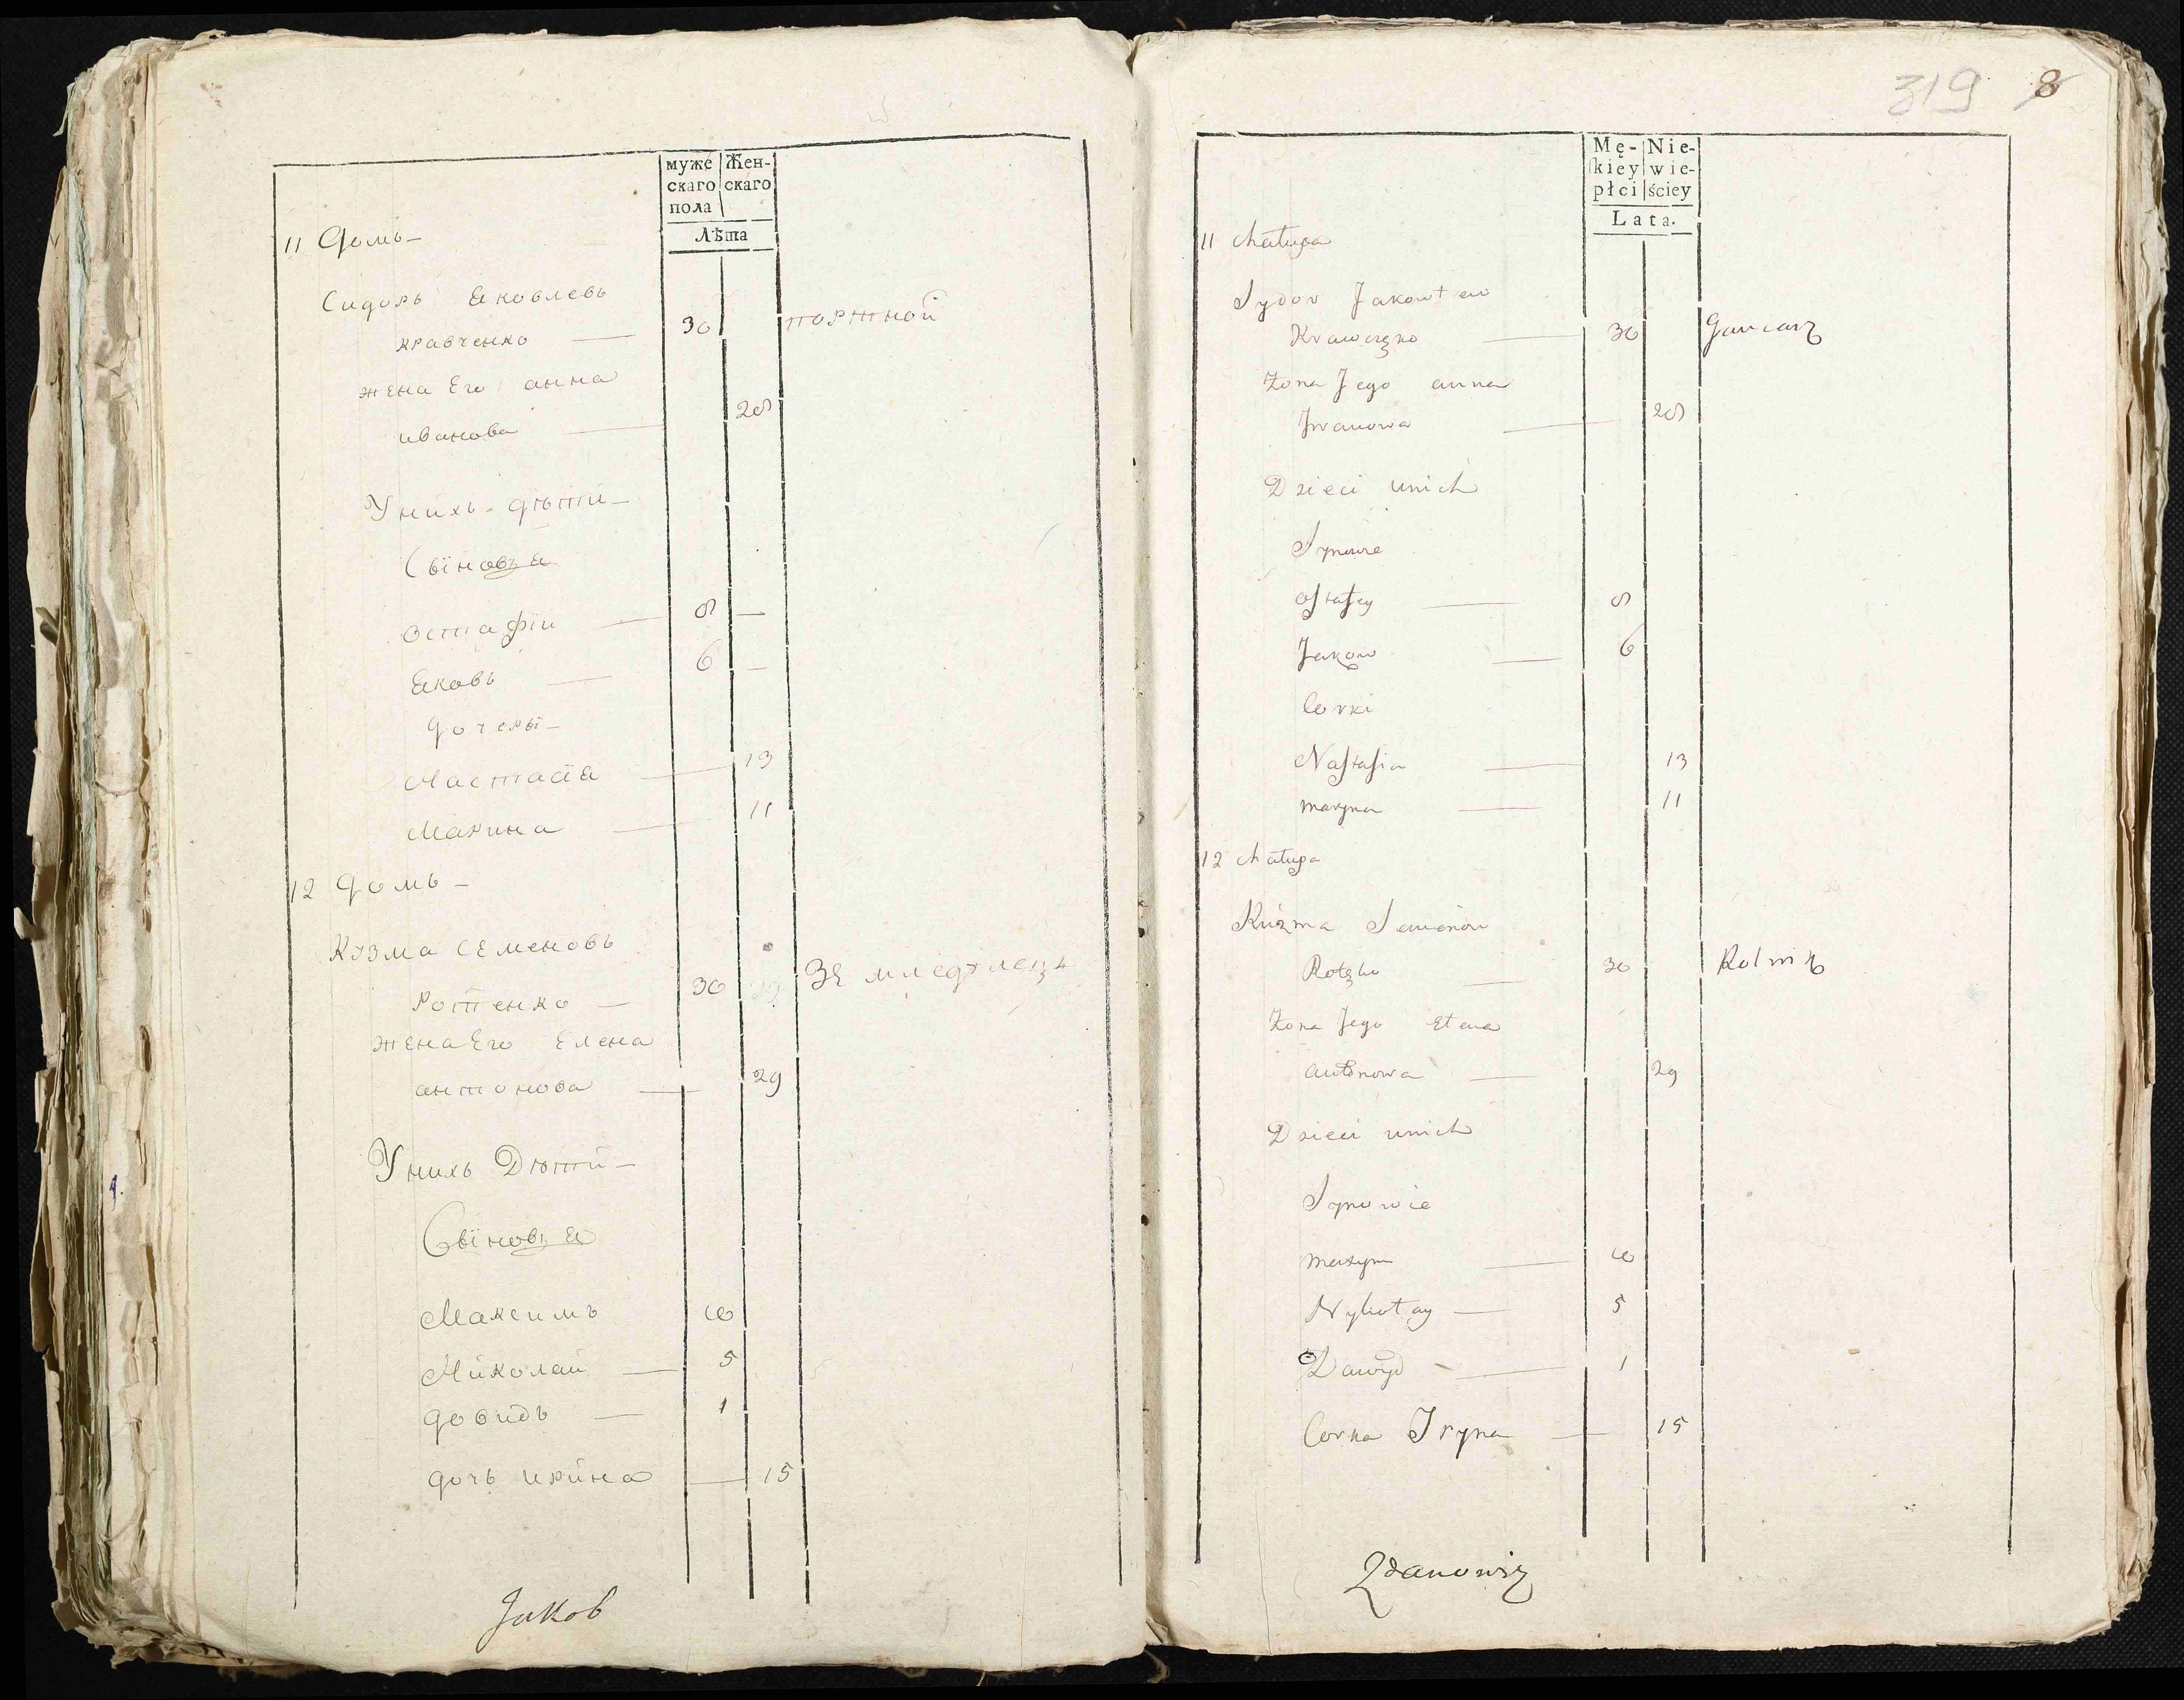 муже скаго пола
Жен- скаго
Лѣта
11 Домъ —
Сидоръ Яковлевъ
кравченко — 30 портной
жена Его анна
иванова — 28
Унихъ дѣти —
Сыновья
Остафiй — 8 —
Яковъ — 6 —
дочеры —
Настасiя — 13
Марина — 11
12 домъ —
Кузма Семеновъ
Ротченко — 30 Земледѣлецъ
жена Его Елена
антонова — 29
Унихъ Дѣти —
Сыновья
Максимъ 10
Николай — 5
довидъ — 1
дочь ирина — 15
Jakob
319 8
Mę- kiey płci
Nie- wie- ściey
Lata.
11 Chałupa
Sydor Jakowłew
Krawczęko — 30 Garcarz
żona Jego anna
Jwanowa — 28
Dzieci unich
Synowie
Ostafey — 8
Jakow — 6
Corki
Nastasia — 13
maryna — 11
12 Chałupa
Kuzma Semenow
Rotczko — 30 Rolnik
żona Jego Elena
antonowa — 29
Dzieci unich
Synowie
maxym — 10
Nykołay — 5
Dawyd — 1
Corka Iryna — 15
Zdanowicz